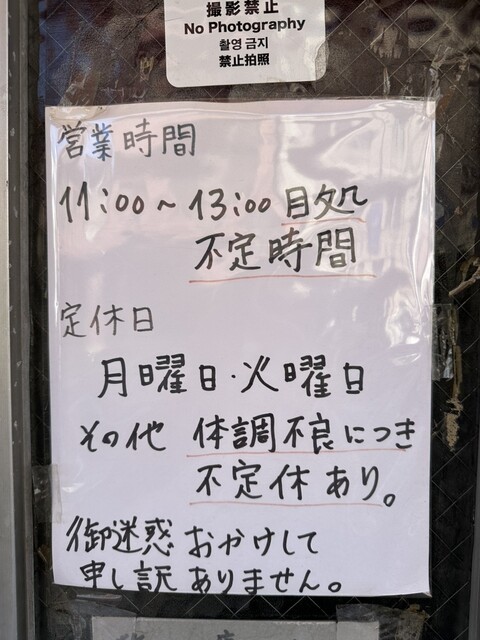 撮影禁止
No Photography
촬영 금지
禁止拍照
営業時間
11:00～13:00 目処
不定時間
定休日
月曜日・火曜日
その他 体調不良につき
不定休あり。
御迷惑おかけして
申し訳ありません。